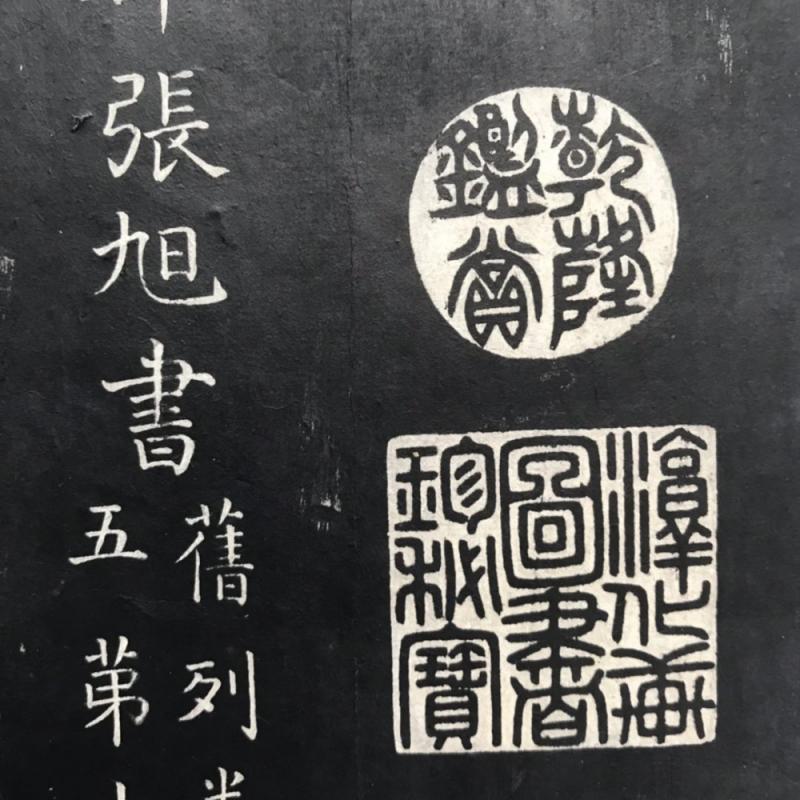 乾隆
鑑賞
淳化軒
圖書
珍秘寶
張旭書
舊列
五第